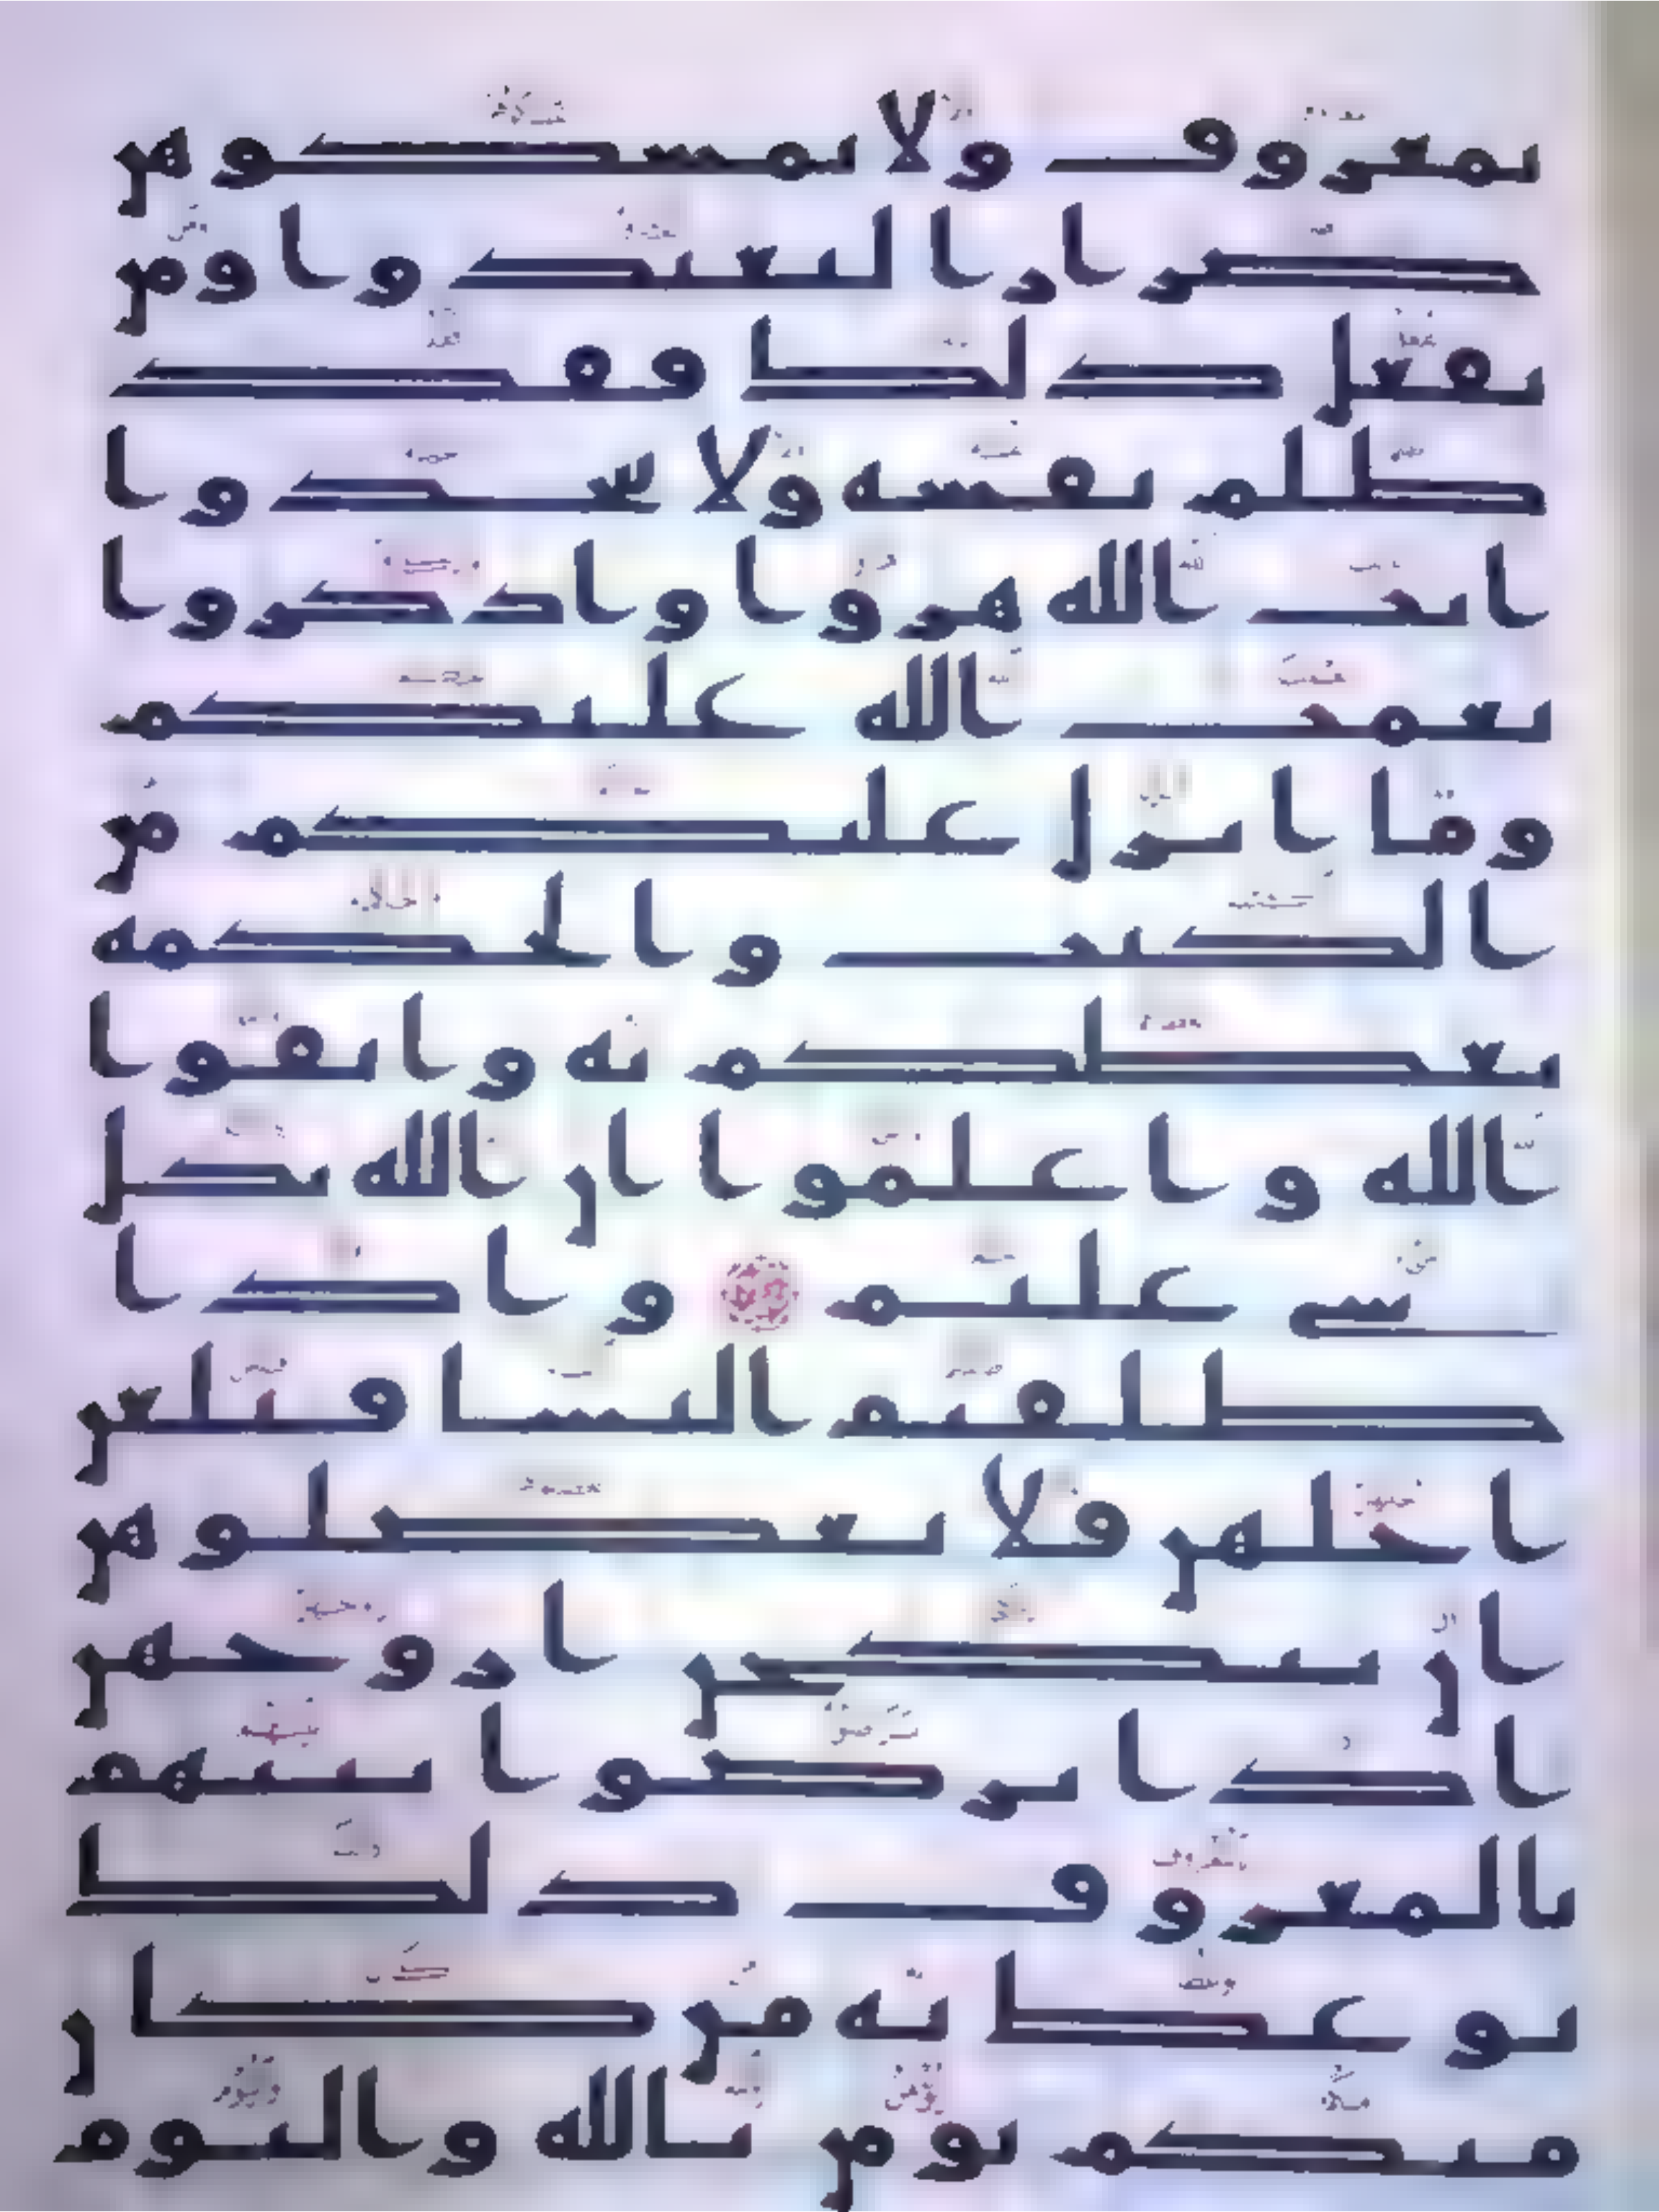 بمعروف ولا تمسكوهن
ضرارا لتعتدوا ومن
يفعل ذلك فقد
ظلم نفسه ولا تتخذوا
ايت الله هزوا واذكروا
نعمت الله عليكم
وما انزل عليكم من
الكتب والحكمة
يعظكم به واتقوا
الله واعلموا ان الله بكل
شي عليم واذا
طلقتم النسا فبلغن
اجلهن فلا تعضلوهن
ان ينكحن ازوجهن
اذا ترضوا بينهم
بالمعروف ذلك
يوعظ به من كان
منكم يومن بالله واليوم